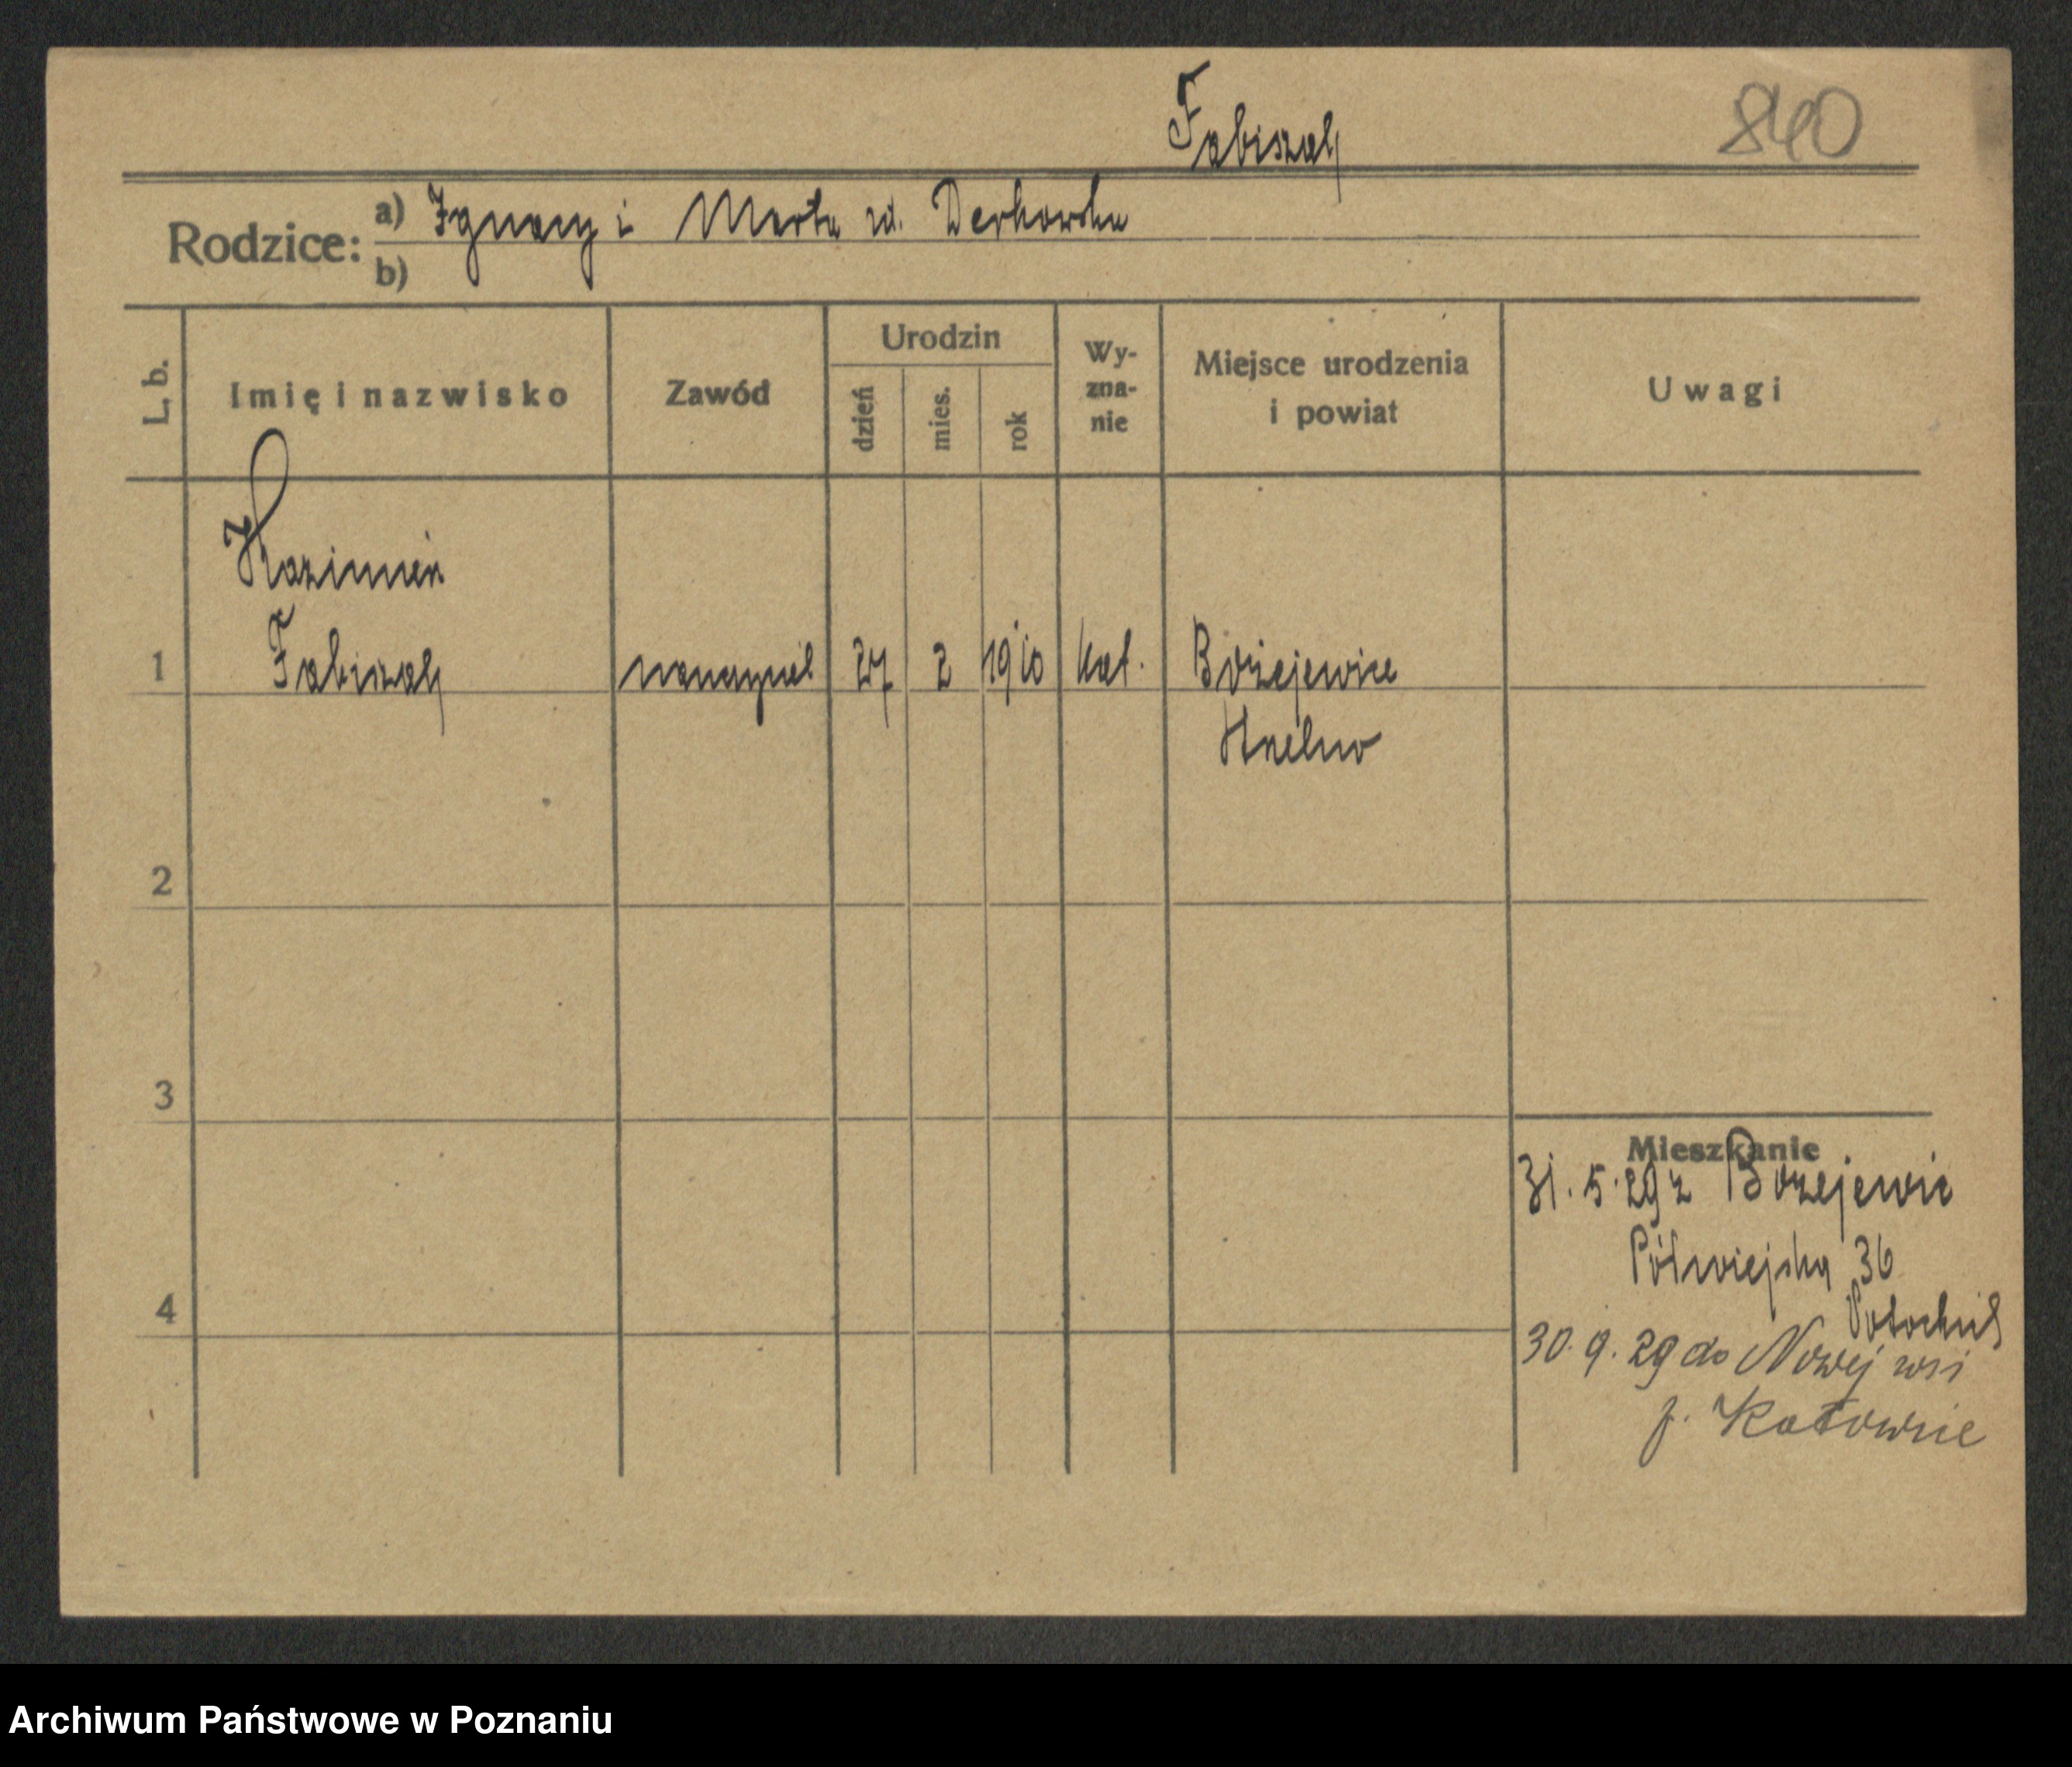 Fabiszak
840
Rodzice: a) Ignacy i Marta zd. Derkowska
b)
L. b.
Imię i nazwisko
Zawód
Urodzin
dzień
mies.
rok
Wy-
zna-
nie
Miejsce urodzenia
i powiat
Uwagi
Kazimierz
1 Fabiszak nauczyciel 27 2 1910 kat. Bożejewice
Strzelno
2
3
4
Mieszkanie
31. 5. 29 z Bożejewic
Półwiejska 36
30. 9. 29 do Nowej wsi
p. Katowice
Archiwum Państwowe w Poznaniu